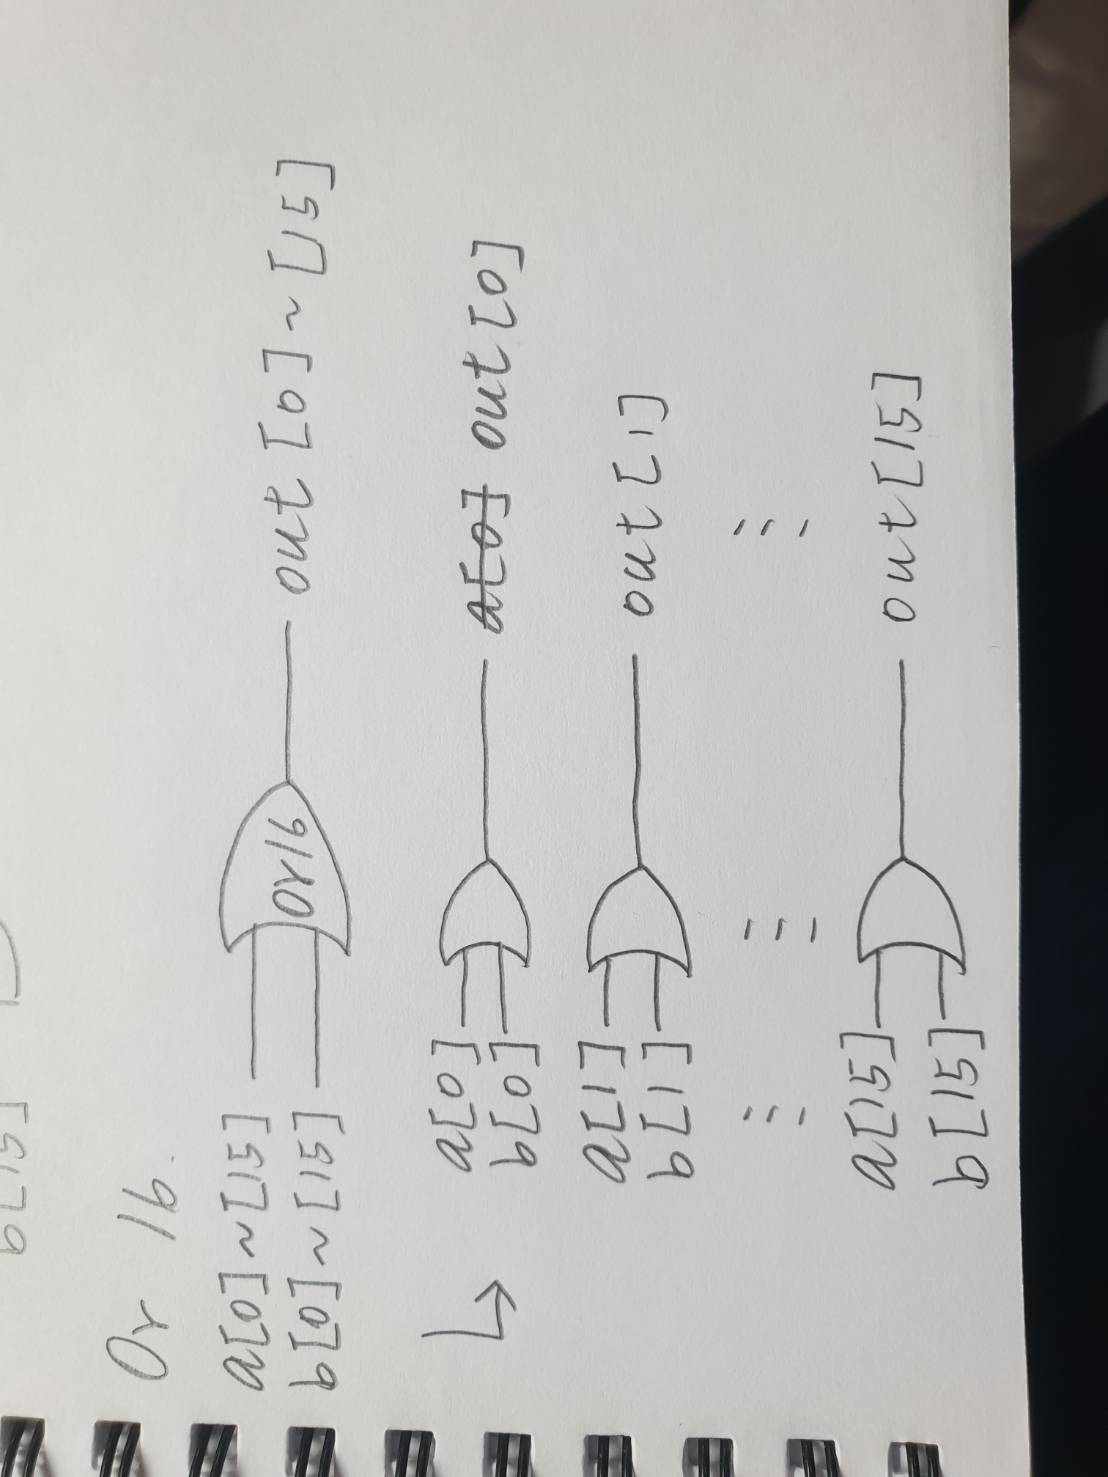 b[15]
Or 16.
a[0]~[15]
b[0]~[15]
Or16
out [0]~[15]
a[0]
b[0]
a[0] out[0]
a[1]
b[1]
out[1]
a[15]
b[15]
out[15]